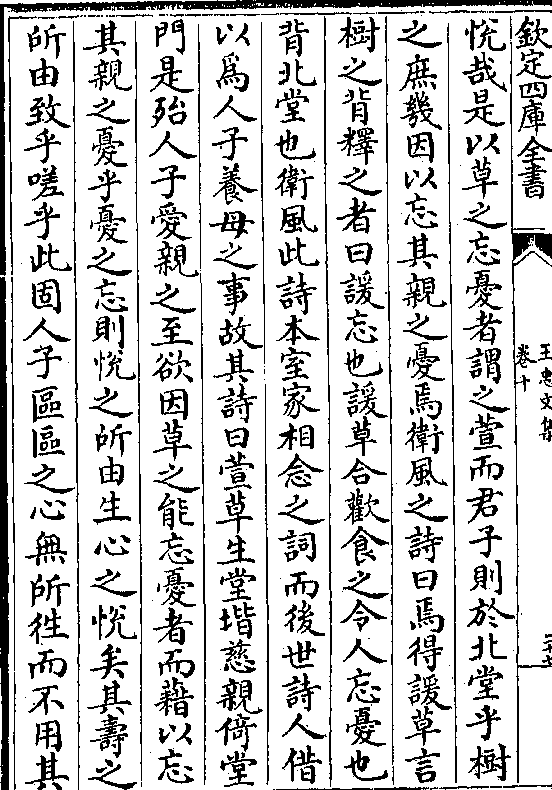 欽定四庫全書
王忠文集
卷十
悅哉是以草之忘憂者謂之萱而君子則於北堂乎樹
之庶幾因以忘其親之憂焉衛風之詩曰焉得諼草言
樹之背釋之者曰諼忘也諼草合歡食之令人忘憂也
背北堂也衛風此詩本室家相念之詞而後世詩人借
以爲人子養母之事故其詩曰萱草生堂堦慈親倚堂
門是殆人子愛親之至欲因草之能忘憂者而藉以忘
其親之憂乎憂之忘則悅之所由生心之悅矣其壽之
所由致乎嗟乎此固人子區區之心無所徃而不用其